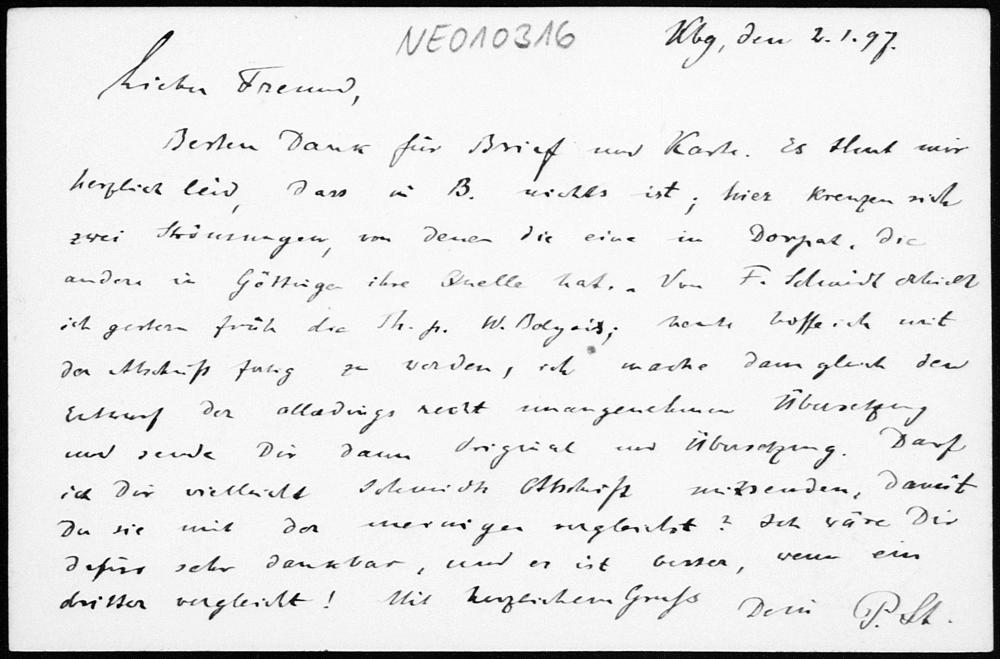 NEO10316
Kbg, den 2.1.97.
Lieber Freund,
Besten Dank für Brief und Karte. Es thut mir
herzlich leid, dass in B. nichts ist; hier kreuzen sich
zwei Strömungen, von denen die eine in Dorpat, die
andere in Göttingen ihre Quelle hat. Von F. Schmidt erhielt
ich gestern früh die Th. p. W. Bolyais; heute hoffe ich mit
der Abschrift fertig zu werden, ich mache dann gleich den
Entwurf der allerdings recht unangenehmen Übersetzung
und sende Dir dann Original und Übersetzung. Darf
ich Dir vielleicht Schmidts Abschrift mitsenden, damit
Du sie mit der meinigen vergleichst? Ich wäre Dir
dafür sehr dankbar, und es ist besser, wenn ein
dritter vergleicht! Mit herzlichem Gruss Dein P. St.